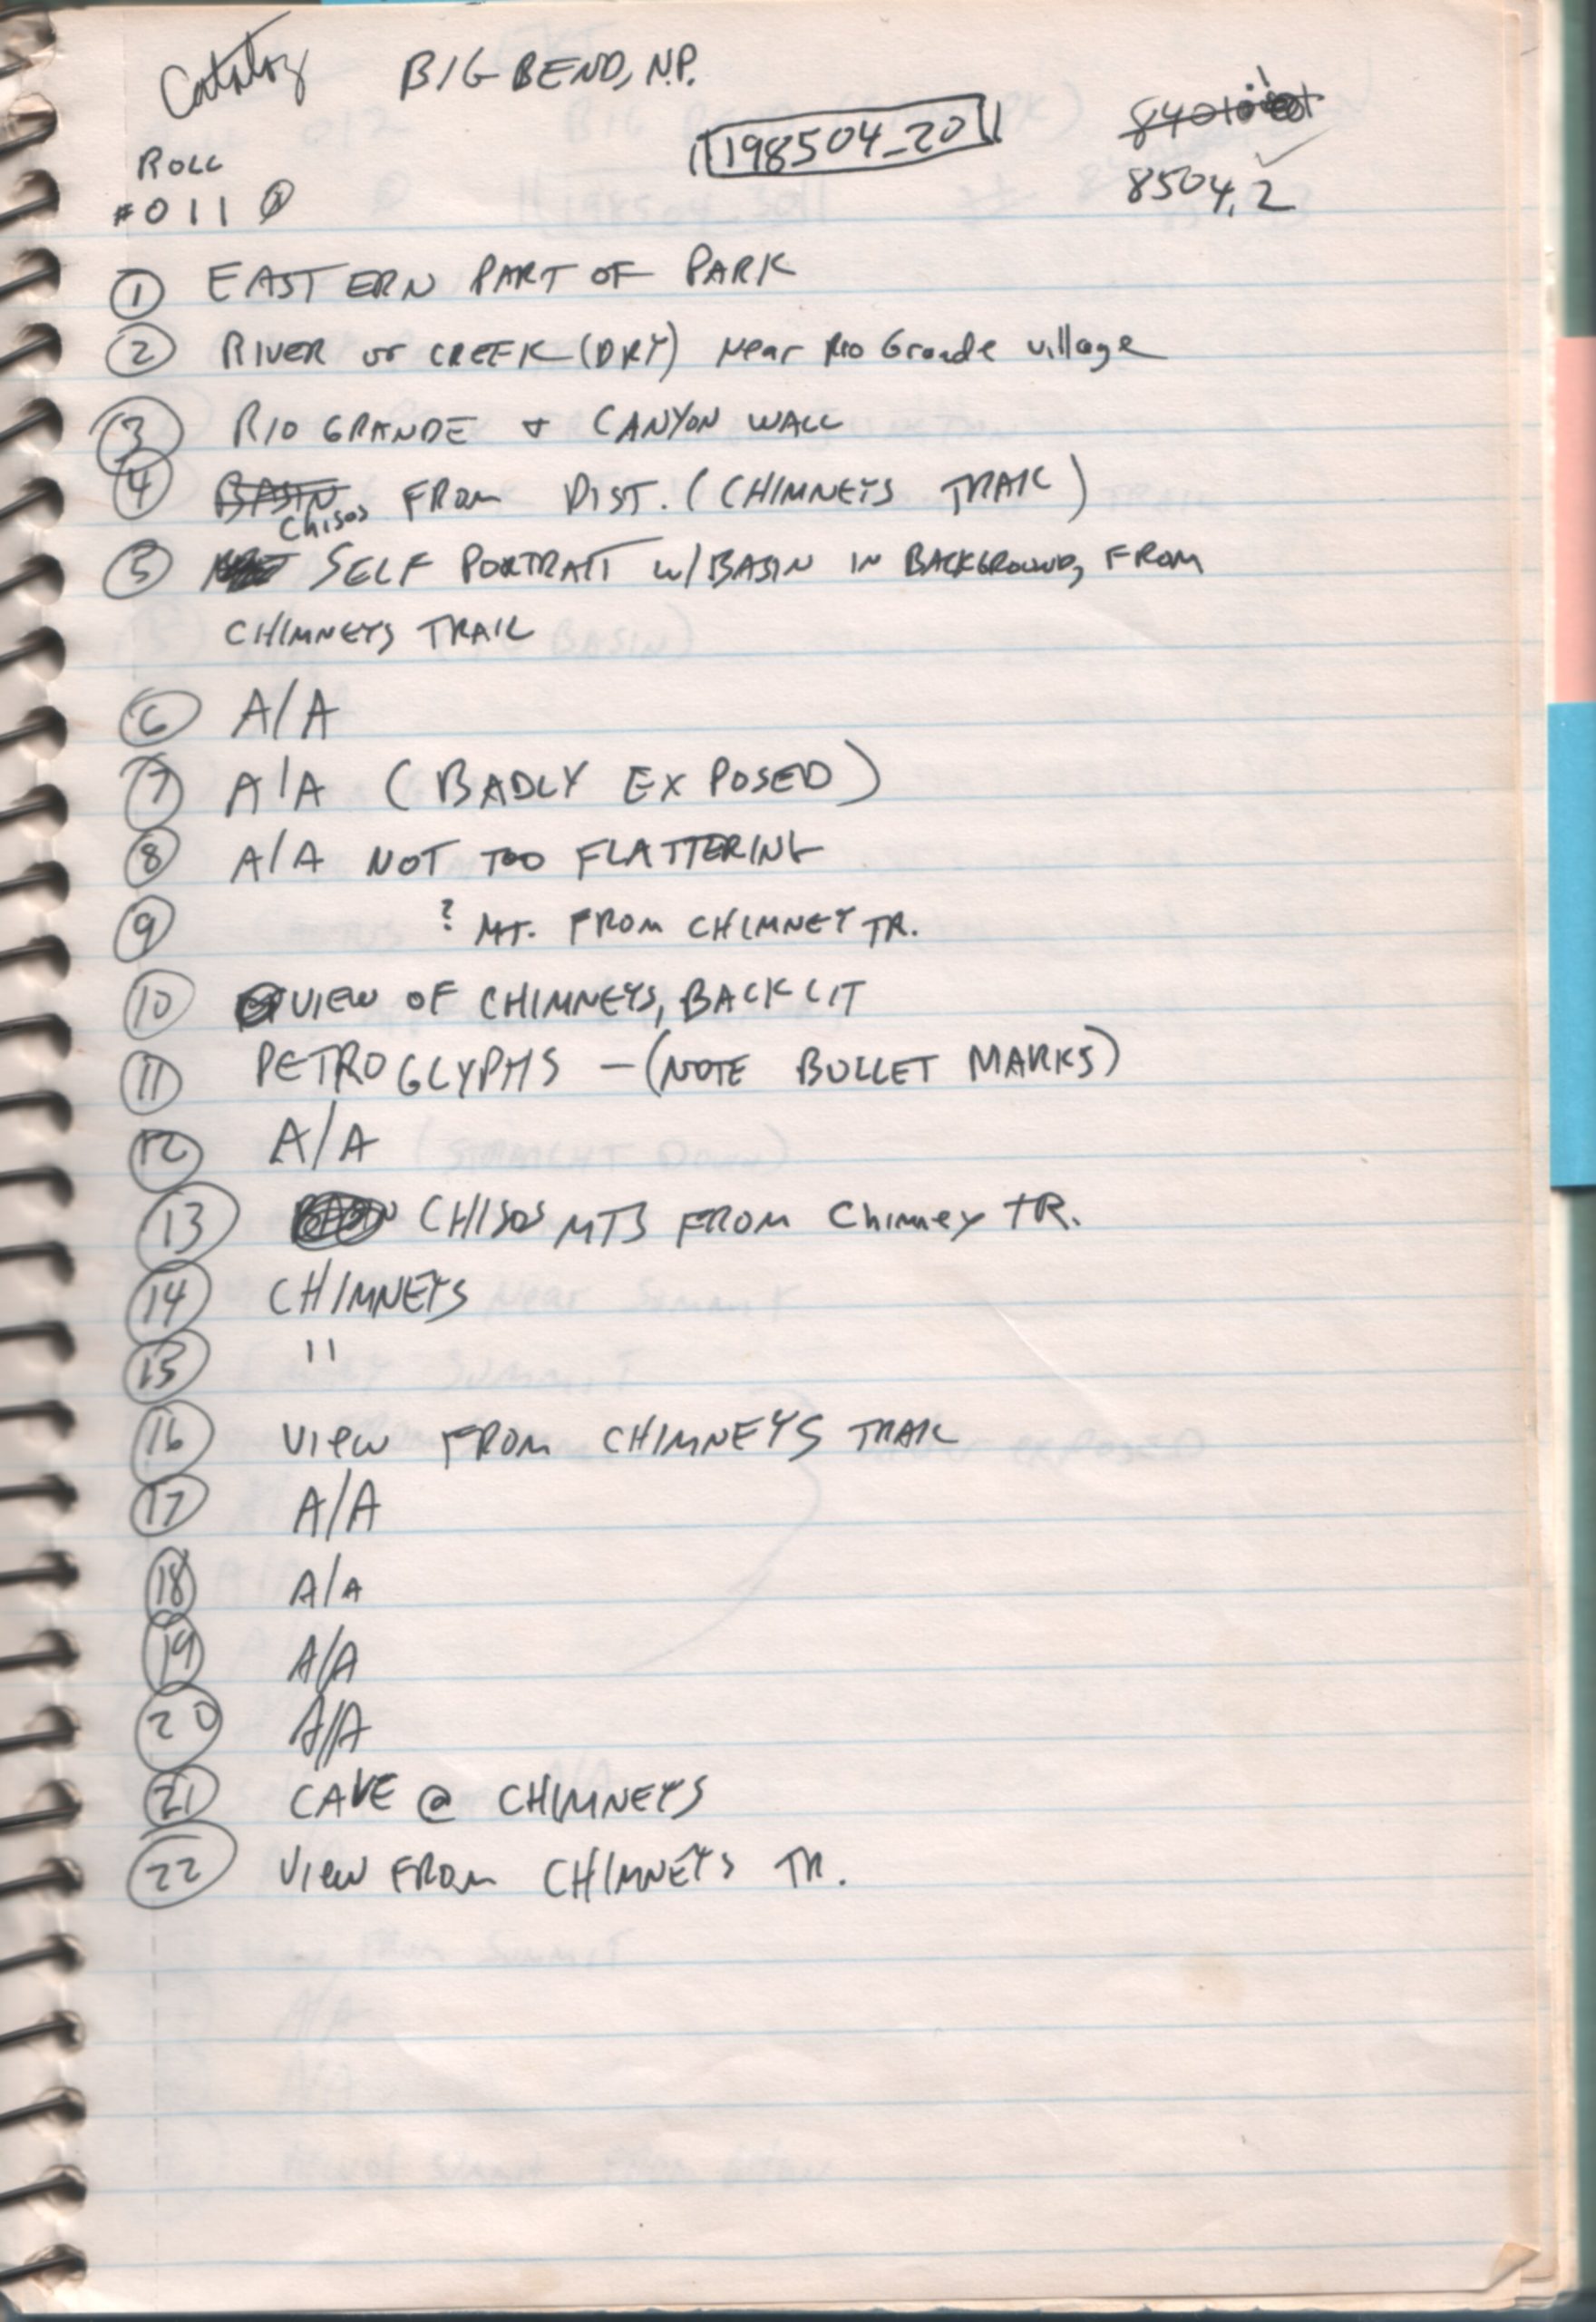 Catalog BIG BEND, N.P.
198504_20
8504.2
ROLL
#011
① EASTERN PART OF PARK
② RIVER or CREEK (DRY) Near Rio Grande village
③ RIO GRANDE & CANYON WALL
④ BASIN Chisos FROM DIST. (CHIMNEYS TRAIL)
⑤ SELF PORTRAIT w/BASIN IN BACKGROUND, FROM
CHIMNEYS TRAIL
⑥ A/A
⑦ A/A (BADLY EXPOSED)
⑧ A/A NOT TOO FLATTERING
⑨ ? MT. FROM CHIMNEY TR.
⑩ VIEW OF CHIMNEYS, BACKLIT
⑪ PETROGLYPHS - (NOTE BULLET MARKS)
⑫ A/A
⑬ CHISOS MTS FROM Chimney TR.
⑭ CHIMNEYS
⑮ "
⑯ VIew FROM CHIMNEYS TRAIL
⑰ A/A
⑱ A/A
⑲ A/A
⑳ A/A
㉑ CAVE @ CHIMNEYS
㉒ VIew FROM CHIMNEYS TR.